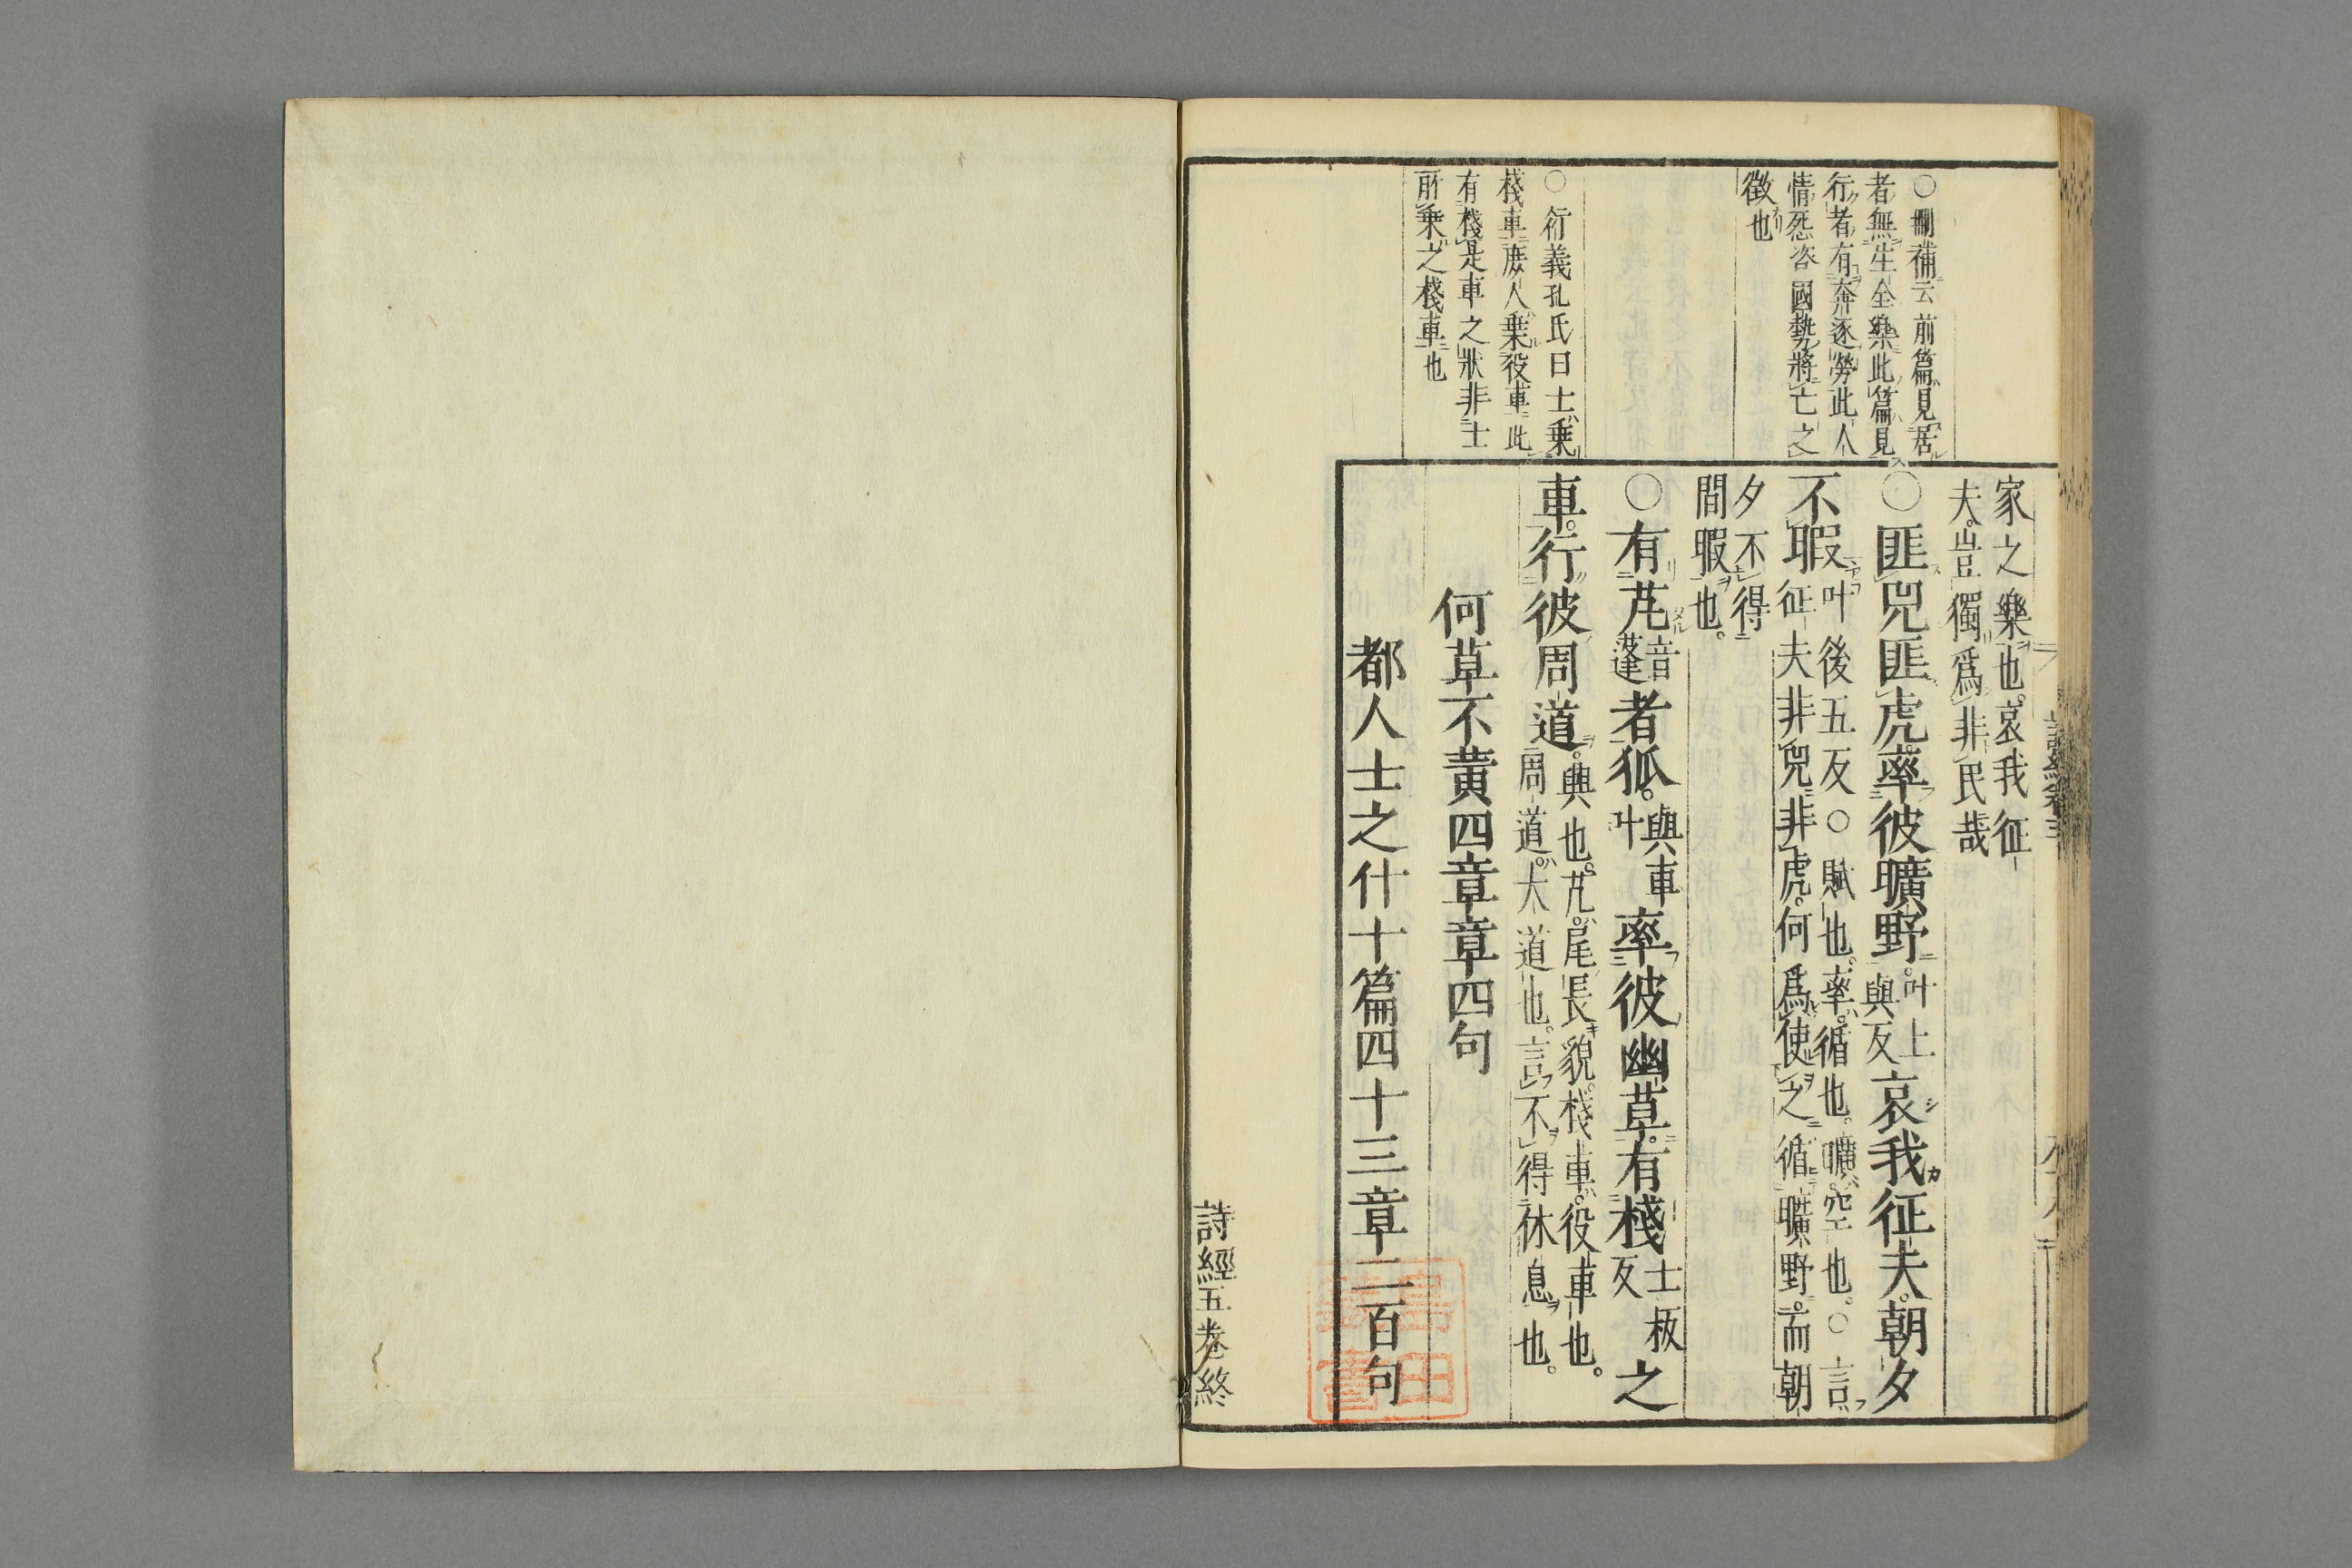 ○刪補云前篇見居
者無生全樂此篇見
行者有奔逐勞此人
情怨咨國勢將亡之
徵也
○衍義孔氏曰士乗
棧車庶人乗役車此
有棧是車之狀非士
所乗之棧車也
家之樂也。哀我征
夫。豈獨爲非民哉
○匪兕匪虎。率彼曠野。叶上
與反哀我征夫。朝夕
不暇叶後五反○賦也。率。循也。曠。空也。○言
征夫非兕非虎。何爲使之循曠野。而朝
夕不得
間暇也。
○有芃音
蓬者狐。與車
叶率彼幽草。有棧士板
反之
車。行彼周道。興也。芃。尾長貌。棧車。役車也。
周道。大道也。言不得休息也。
何草不黄四章章四句
都人士之什十篇四十三章二百句
詩經五卷終